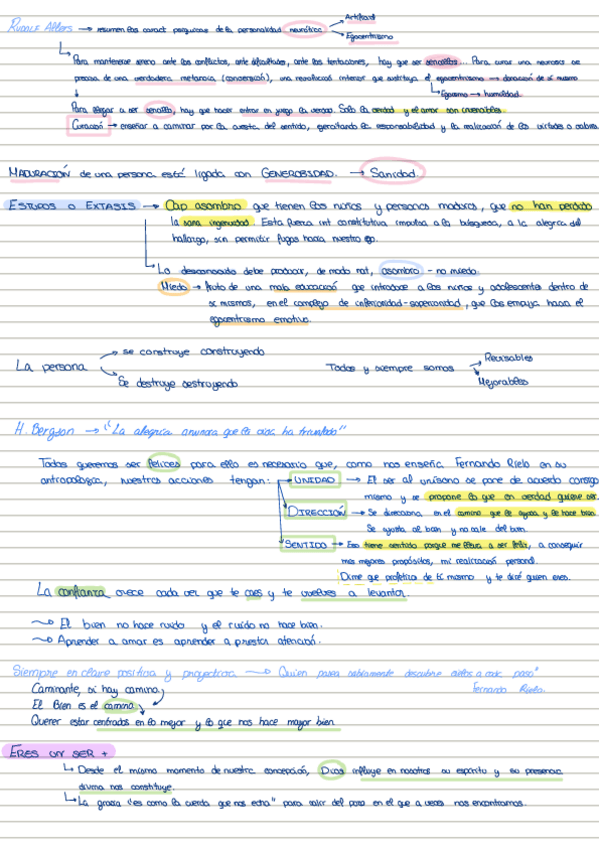 RUDOLF Allers → resumen las caract psíquicas de la personalidad neurótica
Artificial
Egocentrismo
Para mantenerse sereno ante los conflictos, ante dificultades, ante las tentaciones, hay que ser sencillos... Para curar una neurosis se
precisa de una verdadera metanoia (conversión), una revolución interior que sustituya el egocentrismo → donación de sí mismo
Egoísmo → humildad.
Para llegar a ser sencillo, hay que hacer entrar en juego la verdad. Solo la verdad y el amor son invencibles
Curación → enseñar a caminar por la cuesta del sentido, ejercitando la responsabilidad y la realización de las virtudes o valores.
MADURACIÓN de una persona está ligada con GENEROSIDAD. → Sanidad.
ESTUPOS o EXTASIS → Cap asombro que tienen los niños y personas maduras, que no han perdido
la sana ingenuidad. Esta fuerza int constitutiva impulsa a la búsqueda, a la alegría del
hallazgo, sin permitir fugas hacia nuestro ego.
Lo desconocido debe producir, de modo nat, asombro - no miedo.
Miedo → fruto de una mala educación que introduce a los niños y adolescentes dentro de
sí mismos, en el complejo de inferioridad-superioridad, que los empuja hacia el
egocentrismo emotivo.
La persona
se construye construyendo
Se destruye destruyendo
Todos y siempre somos
Revisables
Mejorables
H. Bergson → "La alegría anuncia que la vida ha triunfado"
Todos queremos ser felices para ello es necesario que, como nos enseña Fernando Rielo en su
antropología, nuestras acciones tengan:
UNIDAD → El ser al unísono se pone de acuerdo consigo
mismo y se propone lo que en verdad quiere ser.
DIRECCIÓN → Se direcciona en el camino que le ayuda y le hace bien.
Se ajusta al bien y no sale del bien.
SENTIDO → Eso tiene sentido porque me lleva a ser feliz, a conseguir
mis mejores propósitos, mi realización personal.
Dime que profetiza de ti mismo y te diré quien eres.
La confianza crece cada vez que te caes y te vuelves a levantar.
El bien no hace ruido y el ruido no hace bien.
Aprender a amar es aprender a prestar atención.
Siempre en clave positiva y proyectiva → Quien pasea noblemente descubre cielos a cada paso"
Fernando Rielo.
Caminante, sí hay camino
El Bien es el camino
Querer estar centrados en lo mejor y lo que nos hace mayor bien
ERES UN SER +
Desde el mismo momento de nuestra concepción, Dios influye en nosotros su espíritu y su presencia
divina nos constituye.
La gracia "es como la cuerda que nos echa" para salir del pozo en el que a veces nos encontramos.